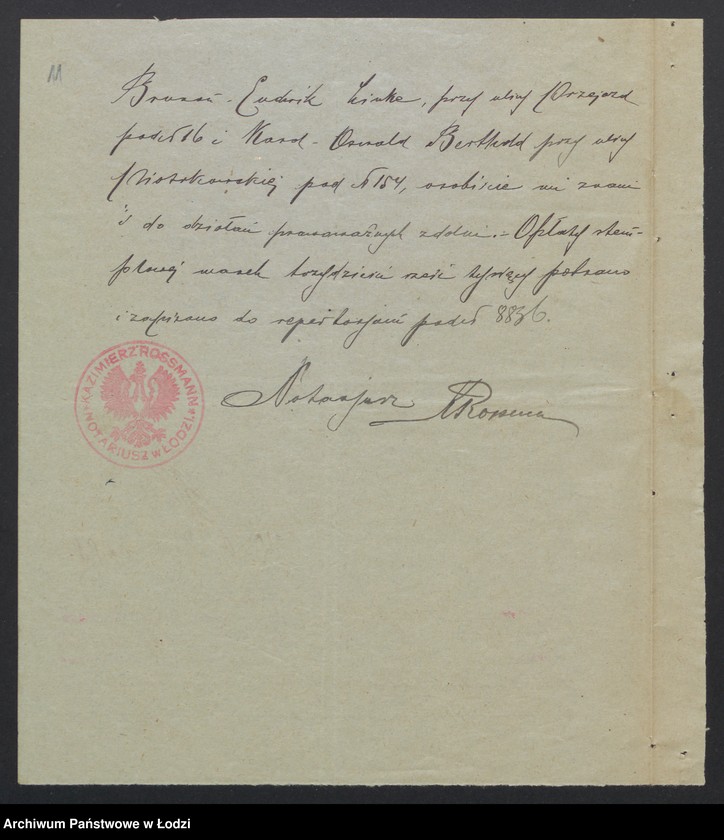 11
Brunon-Ludwik Linke, przy ulicy Przejazd
pod № 16 i Karol-Oswald Berthold przy ulicy
Piotrkowskiej pod № 154, osobiście mi znani
i do działań prawoważnych zdolni.- Opłaty stem-
plowej marek trzydzieści sześć tysięcy pobrano
i zapisano do repertorjum pod № 8836.
Notarjusz KRossman
KAZIMIERZ ROSSMANN
NOTARIUSZ w ŁODZI
Archiwum Państwowe w Łodzi